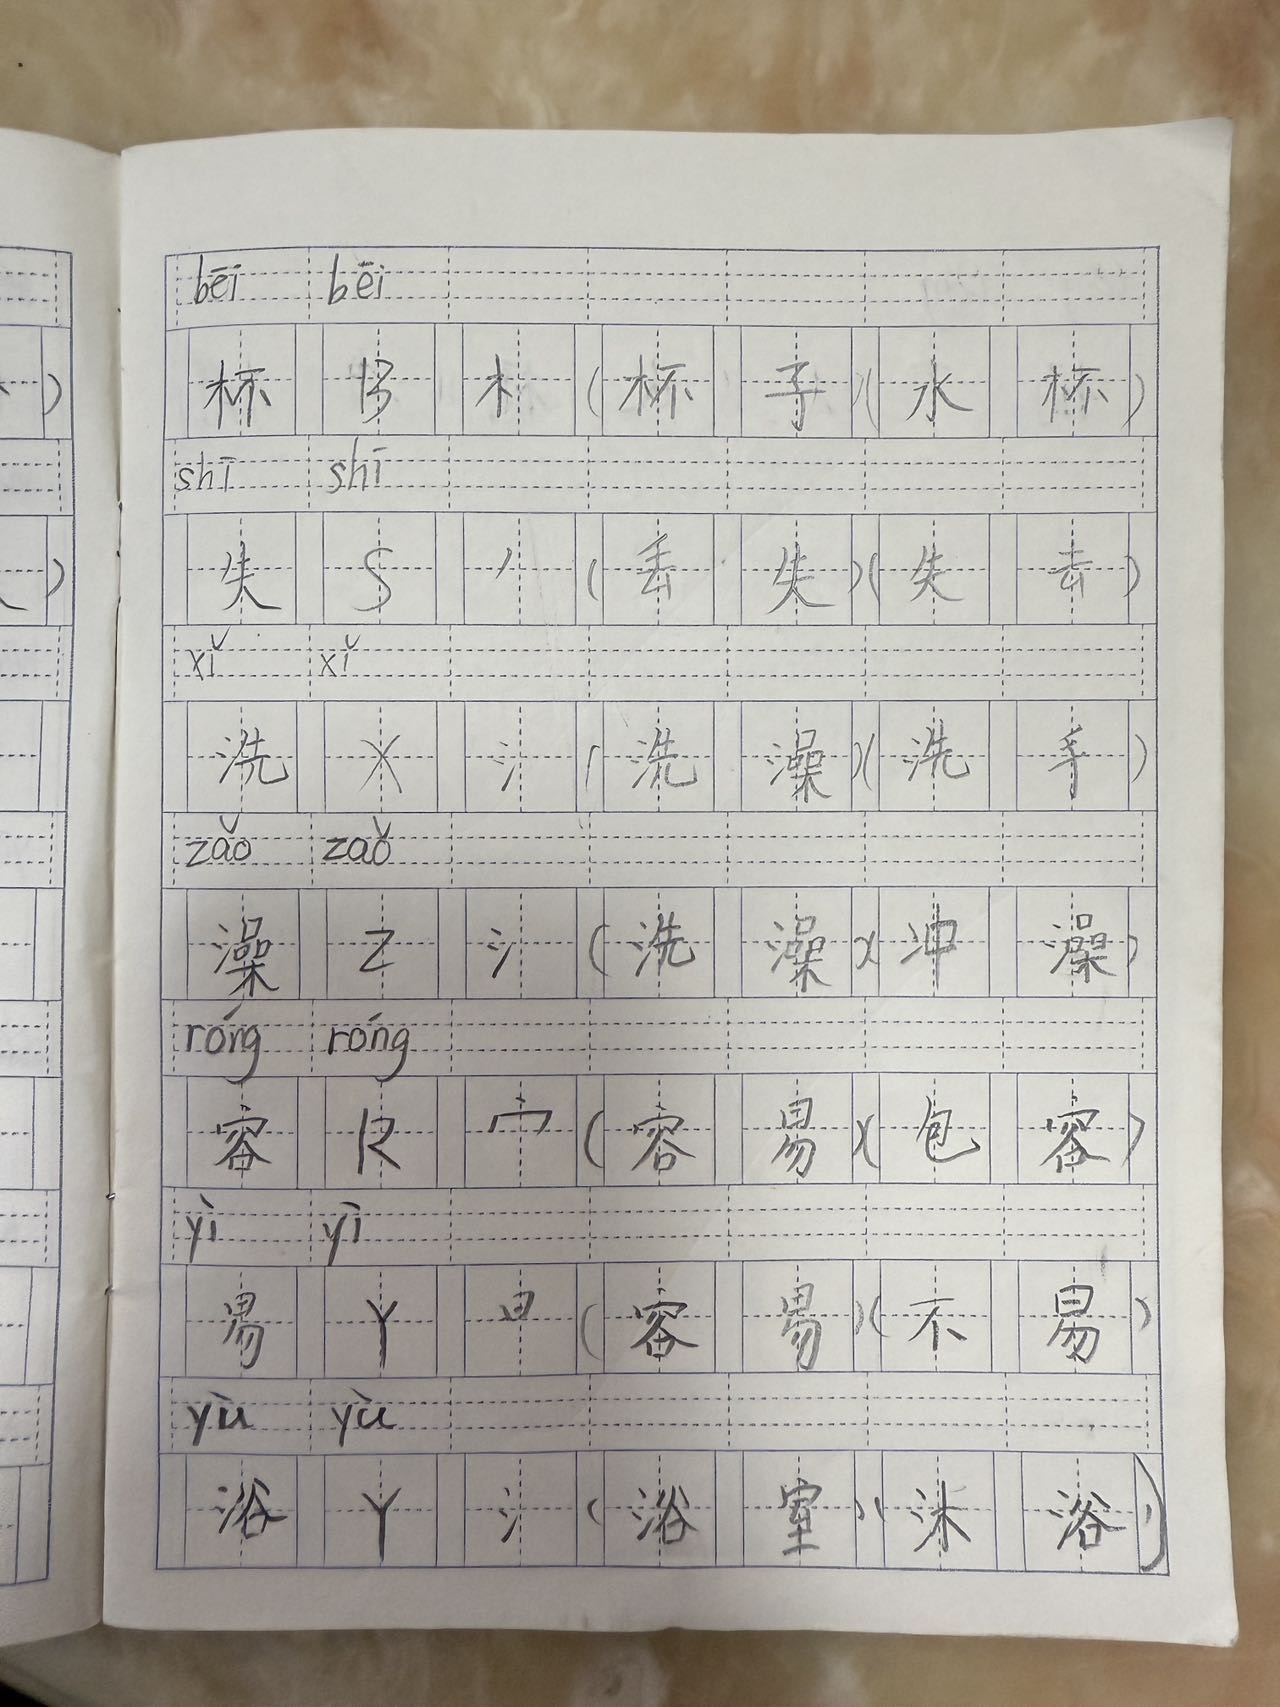 bēi bēi
杯 B 木 (杯子)(水杯)
shī shī
失 S 丿 (丢失)(失去)
xǐ xǐ
洗 X 氵 (洗澡)(洗手)
zǎo zǎo
澡 Z 氵 (洗澡)(冲澡)
róng róng
容 R 宀 (容易)(包容)
yì yì
易 Y 日 (容易)(不易)
yù yù
浴 Y 氵 (浴室)(沐浴)